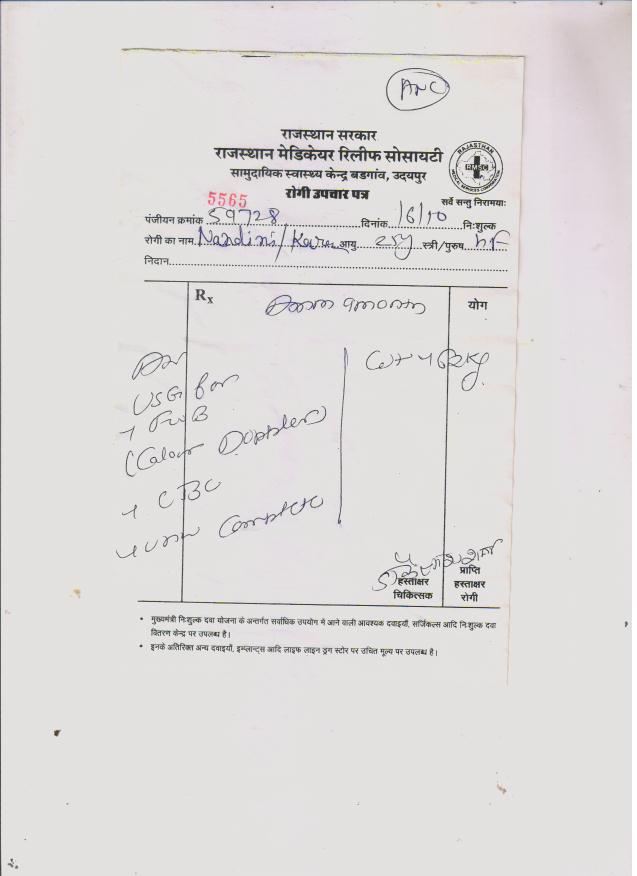 ANC
राजस्थान सरकार
राजस्थान मेडिकेयर रिलीफ सोसायटी
सामुदायिक स्वास्थ्य केन्द्र बडगांव, उदयपुर
RAJASTHAN
RMSC
MEDICAL SERVICES CORPORATION
रोगी उपचार पत्र
सर्वे सन्तु निरामयाः
5565
पंजीयन क्रमांक 59728 दिनांक 1/6/10 निःशुल्क
रोगी का नाम Nandini / आयु 25y स्त्री/पुरुष
निदान
Rx 9month योग
wt 62kg
USG for
FWB
(Colour Doppler)
CBC
Complete
हस्ताक्षर चिकित्सक
प्राप्ति हस्ताक्षर रोगी
• मुख्यमंत्री निःशुल्क दवा योजना के अन्तर्गत सर्वाधिक उपयोग में आने वाली आवश्यक दवाइयाँ, सर्जिकल्स आदि निःशुल्क दवा
वितरण केन्द्र पर उपलब्ध है।
• इनके अतिरिक्त अन्य दवाइयाँ, इम्प्लान्ट्स आदि लाइफ लाइन ड्रग स्टोर पर उचित मूल्य पर उपलब्ध है।